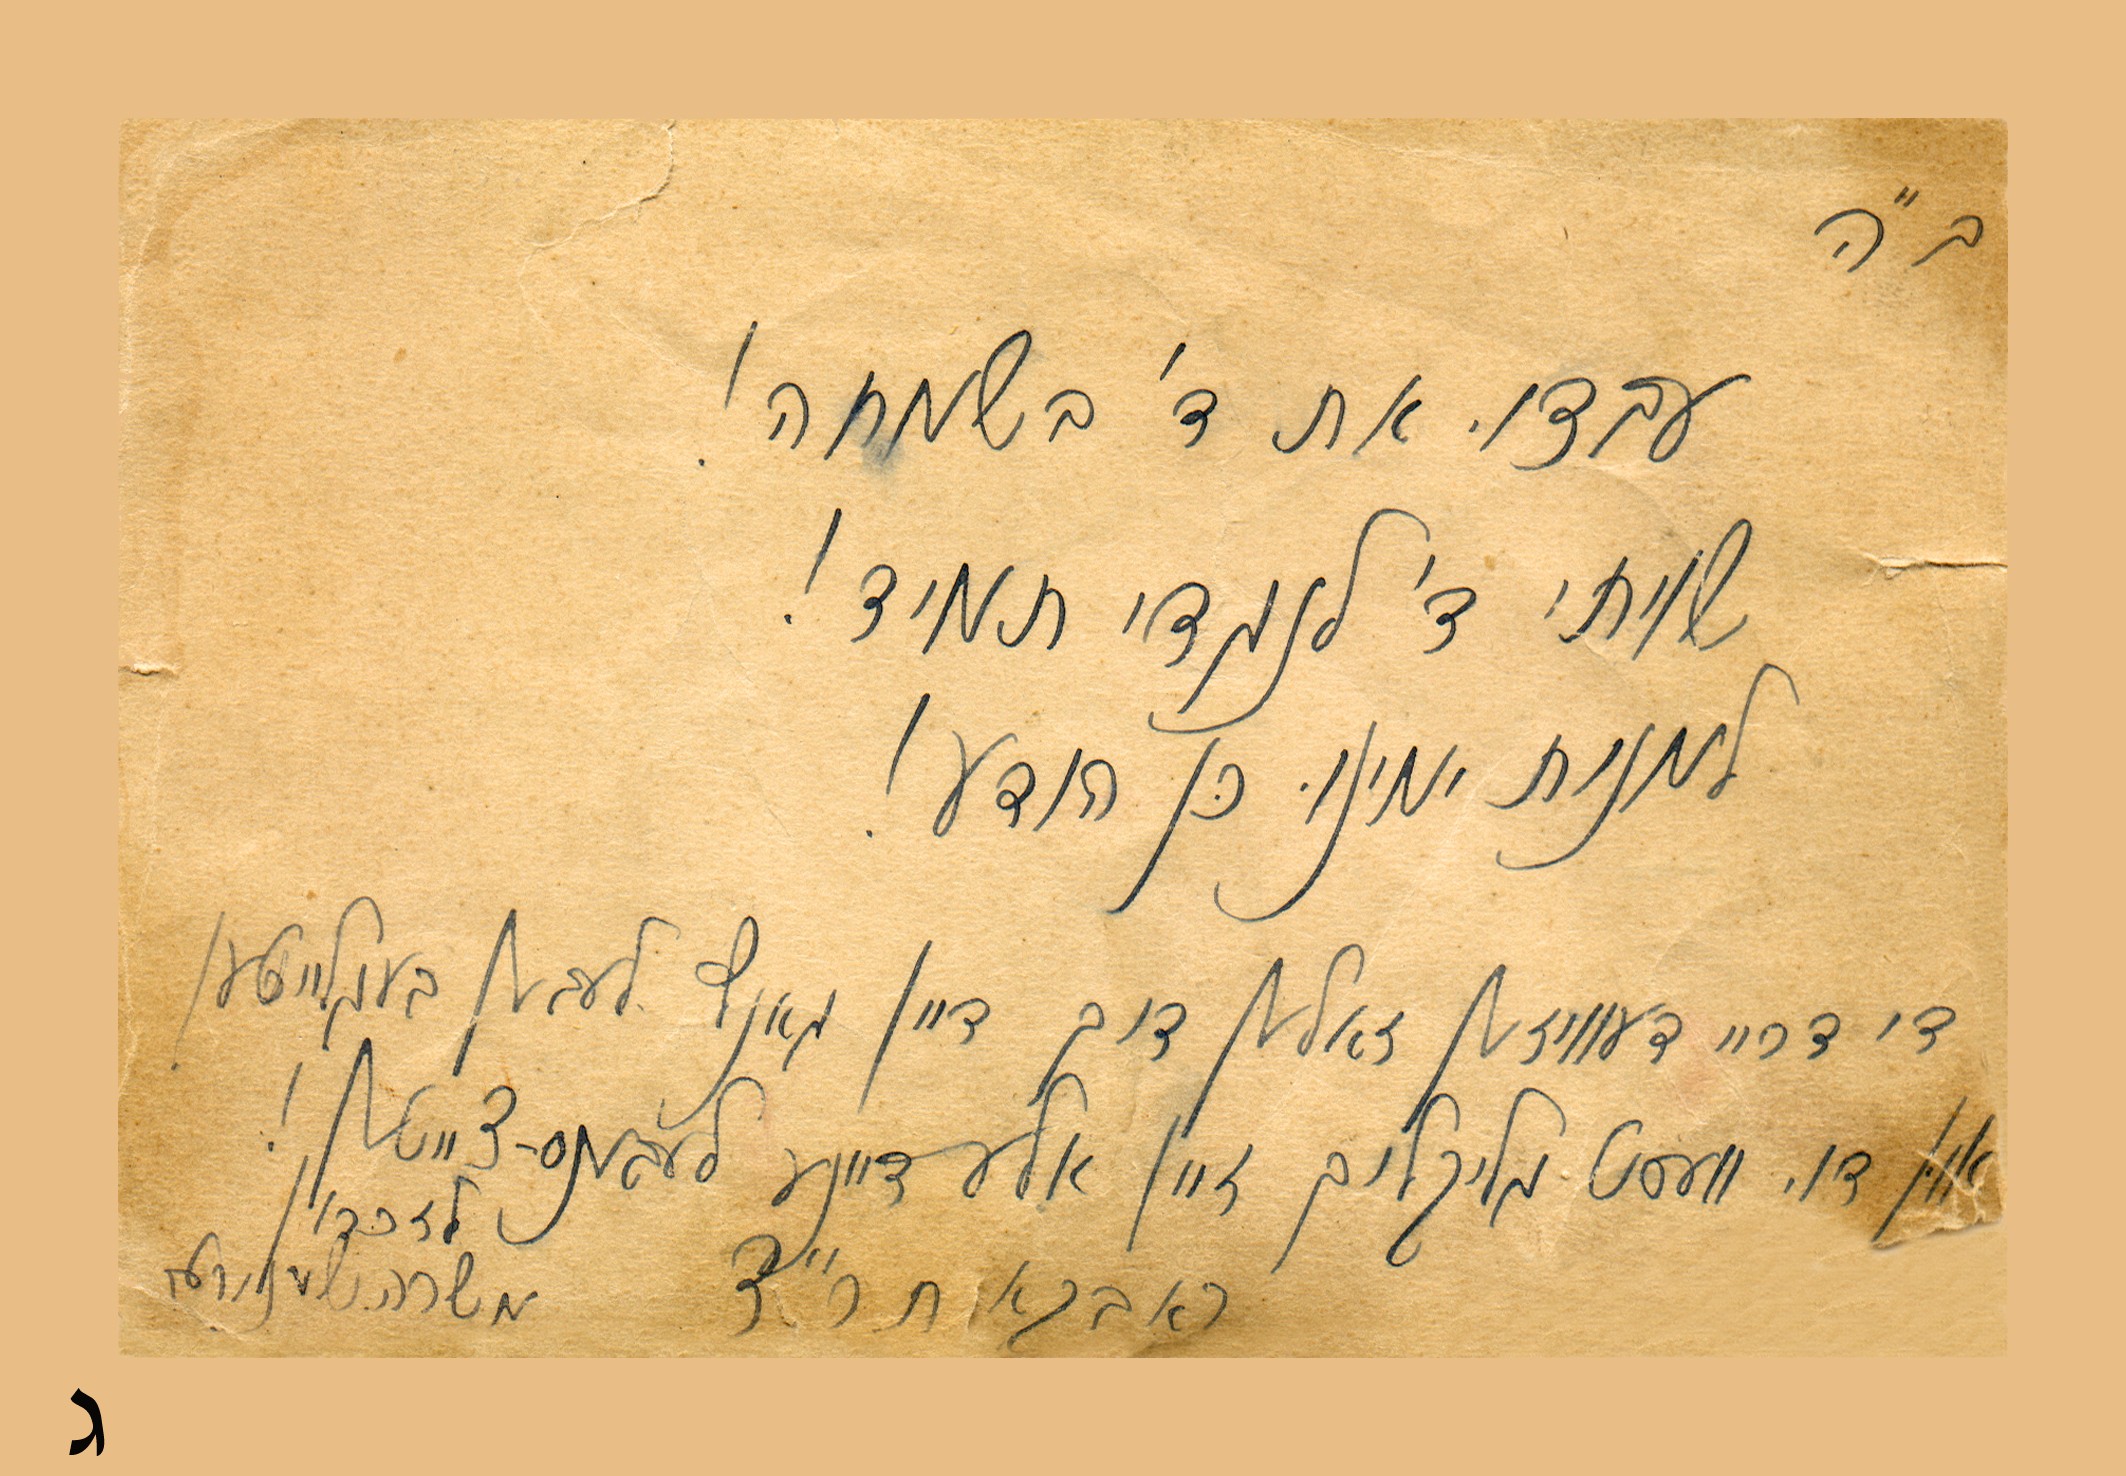 ב"ה
עבדו את ד' בשמחה!
שויתי ד' לנגדי תמיד!
למנות ימינו כן הודע!
די דריי דעוויזען זאלען דיך דיין גאנץ לעבען בעגלייטען
און דו וועסט גליקליך זיין אלע דיינע לעבענס-צייטען!
לזכרון
ראבקא תר"צ
משרה
ג